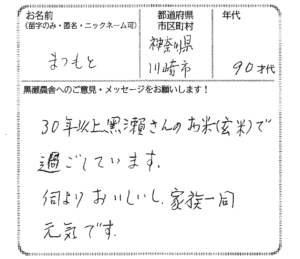 お名前
（苗字のみ・匿名・ニックネーム可）
まつもと
都道府県
市区町村
神奈川県
川崎市
年代
90才代
黒瀬農舎へのご意見・メッセージをお願いします！
30年以上黒瀬さんのお米(玄米)で
過ごしています.
何よりおいしいし、家族一同
元気です.